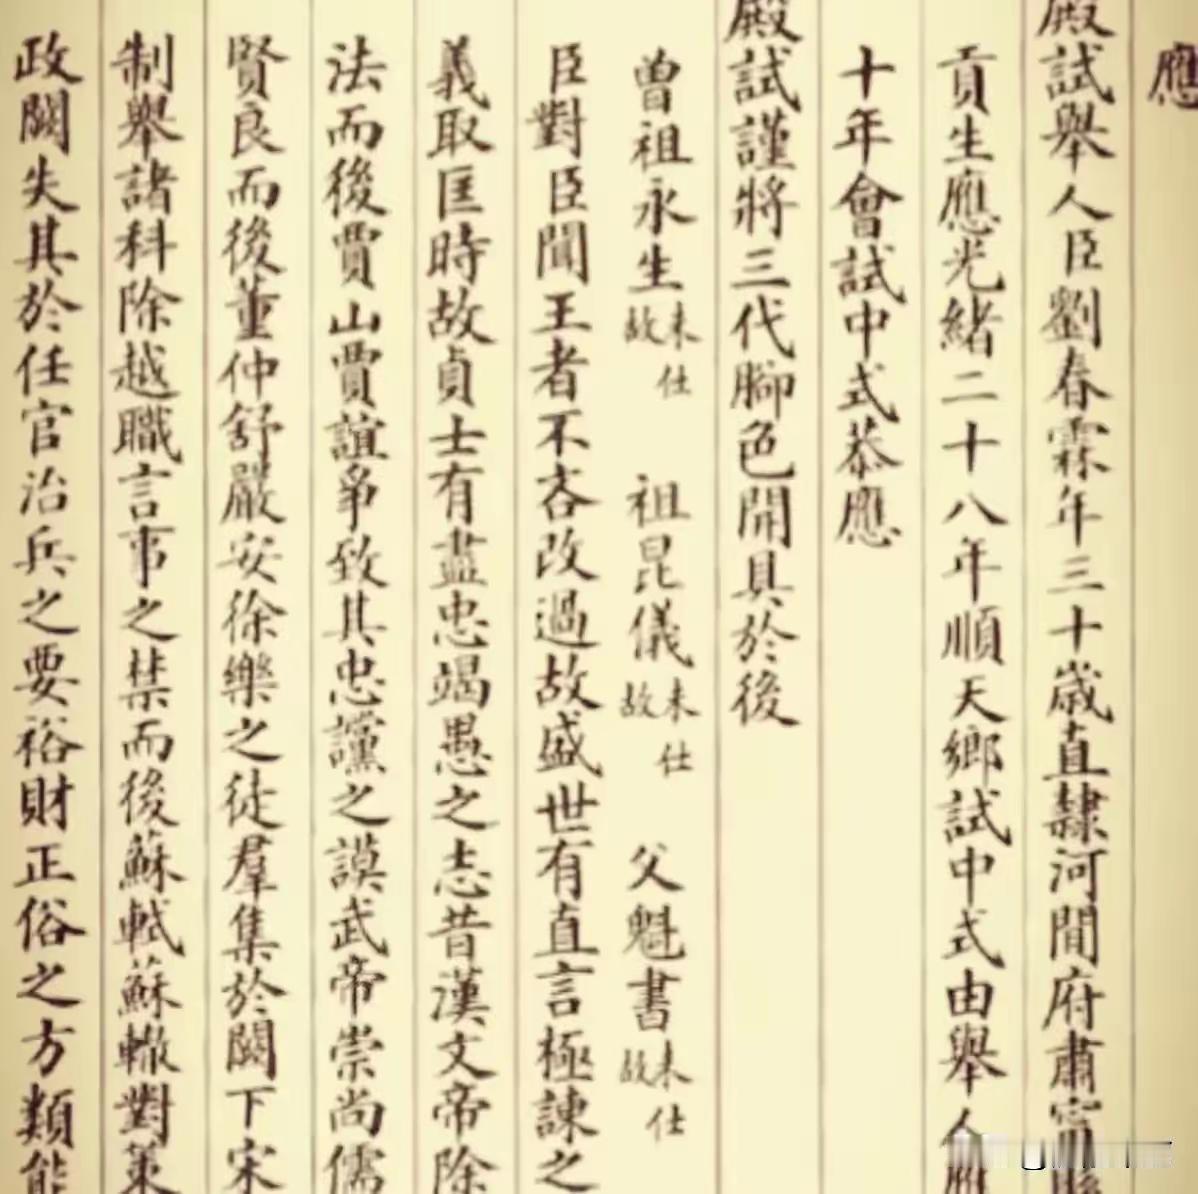 應
殿試舉人臣劉春霖年三十歲直隸河間府肅甯縣
貢生應光緒二十八年順天鄉試中式由舉人應
十年會試中式恭應
殿試謹將三代腳色開具於後
曾祖永生未仕故 祖昆儀未仕故 父魁書未仕故
臣對臣聞王者不吝改過故盛世有直言極諫之
義取匡時故貞士有盡忠竭愚之志昔漢文帝除
法而後賈山賈誼爭致其忠讜之謨武帝崇尚儒
賢良而後董仲舒嚴安徐樂之徒羣集於闕下宋
制舉諸科除越職言事之禁而後蘇軾蘇轍對策
政闕失其於任官治兵之要裕財正俗之方類能